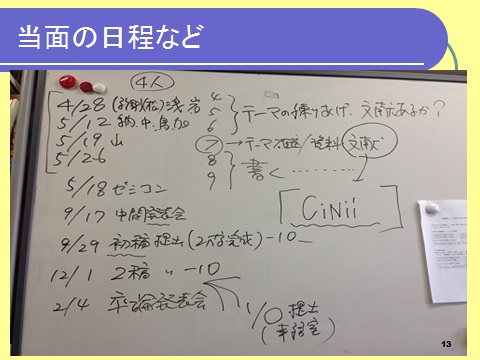 当面の日程など
4人
4/28
5/12
5/19 山
5/26
4
5
6
テーマの練りあげ、文献あるか?
7 → テーマ 資料 文献
8
9
書く
5/18 ゼミコン
9/17 中間発表会
CiNii
9/29 初稿提出(2万字完成) -10
12/1 2稿 〃 -10
2/4 卒論発表会
1/○提出
(事務室)
13